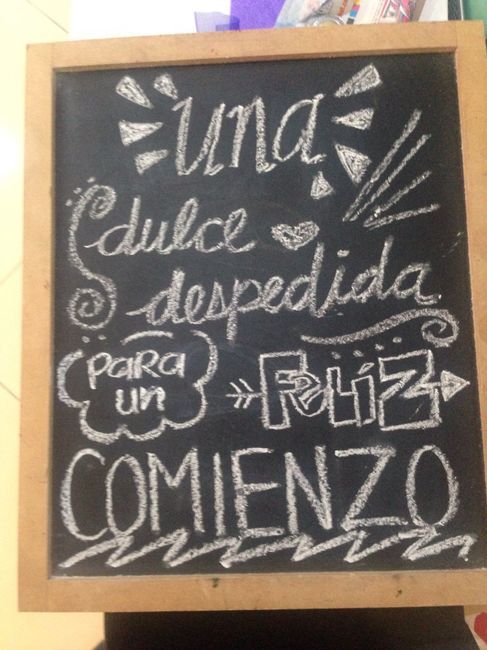 una
dulce
despedida
PARA UN
FELÍZ
COMIENZO